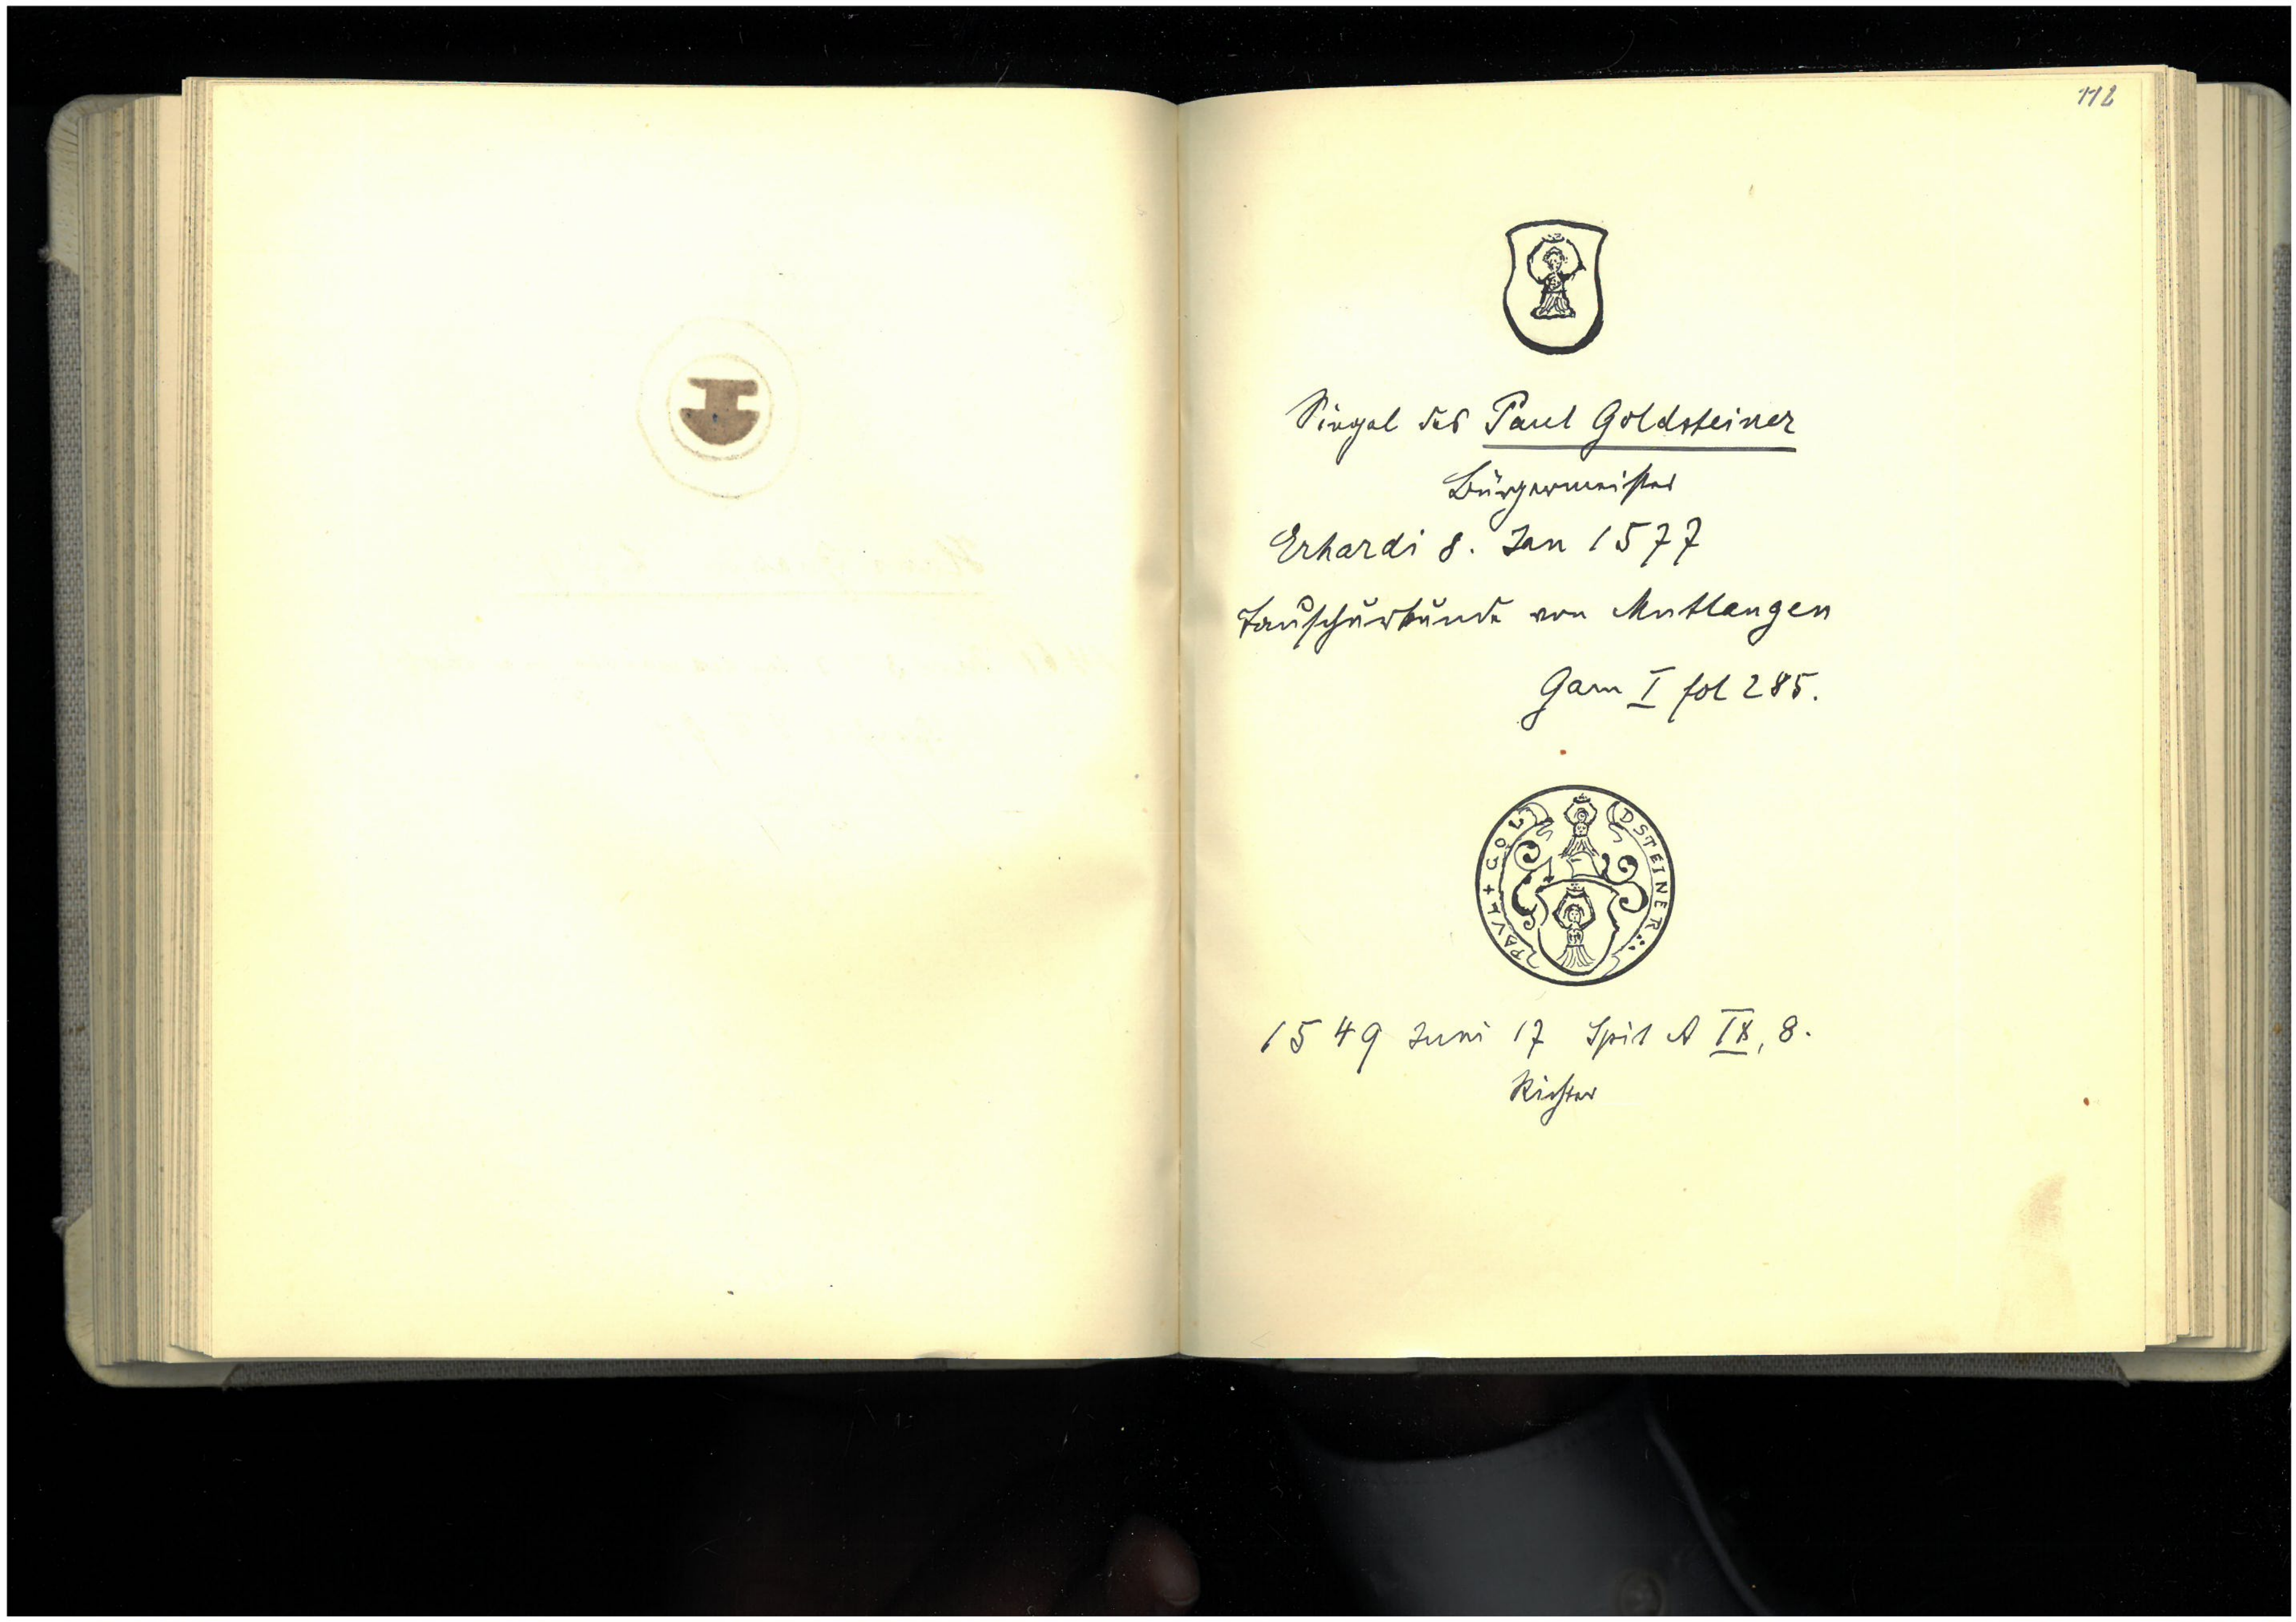 112
Siegel des Paul Goldsteiner
Bürgermeister
Erhardi 8. Jan 1577
Tauschurkunde von Mutlangen
Gam I fol 285.
PAVL + GOLDSTEINER
1549 Juni 17 Spit A IX, 8.
Richter